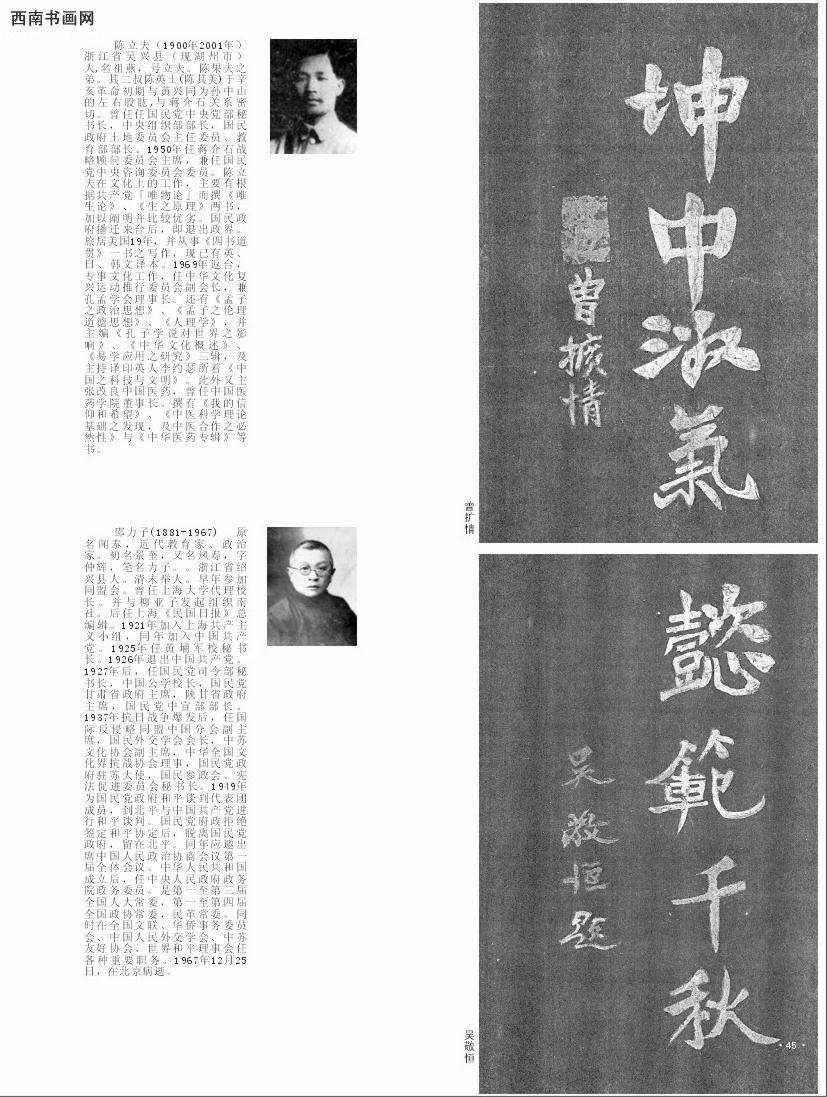 西南书画网
陈立夫（1900年2001年）
浙江省吴兴县（现湖州市）
人,名祖燕，号立夫。陈果夫之
弟。其二叔陈英士(陈其美)于辛
亥革命初期与黄兴同为孙中山
的左右股肱,与蒋介石关系密
切。曾任任国民党中央党部秘
书长，中央组织部部长，国民
政府土地委员会主任委员、教
育部部长。1950年任蒋介石战
略顾问委员会主席，兼任国民
党中央咨询委员会委员。陈立
夫在文化上的工作，主要有根
据共产党「唯物论」而撰《唯
生论》、《生之原理》两书，
加以阐明并比较优劣。国民政
府播迁来台后，即退出政界。
旅居美国19年，并从事《四书道
贯》一书之写作，现已有英、
日、韩文译本。1969年返台，
专事文化工作，任中华文化复
兴运动推行委员会副会长，兼
孔孟学会理事长。还有《孟子
之政治思想》、《孟子之伦理
道德思想》、《人理学》，并
主编《孔子学说对世界之影
响》、《中华文化概述》、
《易学应用之研究》三辑，及
主持译印英人李约瑟所着《中
国之科技与文明》。此外又主
张改良中国医药，曾任中国医
药学院董事长。撰有《我的信
仰和希望》、《中医科学理论
基础之发现，及中医合作之必
然性》与《中华医药专辑》等
书。
坤中淑氣
曾擴情
曾扩情
邵力子(1881-1967) 原
名闻泰，近代教育家、政治
家。初名景奎，又名凤寿，字
仲辉，笔名力子。。浙江省绍
兴县人。清末举人。早年参加
同盟会。曾任上海大学代理校
长。并与柳亚子发起组织南
社。后任上海《民国日报》总
编辑。1921年加入上海共产主
义小组，同年加入中国共产
党。1925年任黄埔军校秘书
长。1926年退出中国共产党。
1927年后，任国民党司令部秘
书长，中国公学校长，国民党
甘肃省政府主席，陕甘省政府
主席，国民党中宣部部长。
1937年抗日战争爆发后，任国
际反侵略同盟中国分会副主
席，国民外交学会会长，中苏
文化协会副主席，中华全国文
化界抗战协会理事，国民党政
府驻苏大使，国民参政会、宪
法促进委员会秘书长。1949年
为国民党政府和平谈判代表团
成员，到北平与中国共产党进
行和平谈判。国民党府政拒绝
签定和平协定后，脱离国民党
政府，留在北平。同年应邀出
席中国人民政治协商会议第一
届全体会议。中华人民共和国
成立后，任中央人民政府政务
院政务委员。是第一至第三届
全国人大常委，第一至第四届
全国政协常委，民革常委。同
时在全国文联、华侨事务委员
会、中国人民外交学会、中苏
友好协会、世界和平理事会任
各种重要职务。1967年12月25
日，在北京病逝。
懿範千秋
吴敬恒題
吴敬恒
· 45 ·